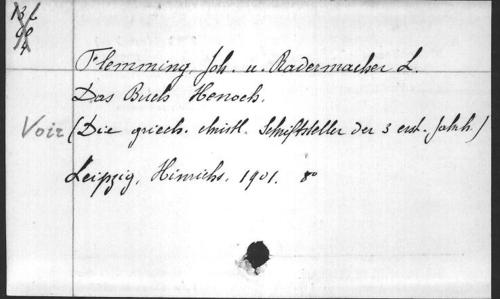 Flemming, Joh. u. Radermacher L.
Das Buch Henoch.
Voir (Die griech. christl. Schriftsteller der 3 erst. Jahrh.)
Leipzig, Hinrichs. 1901. 8º